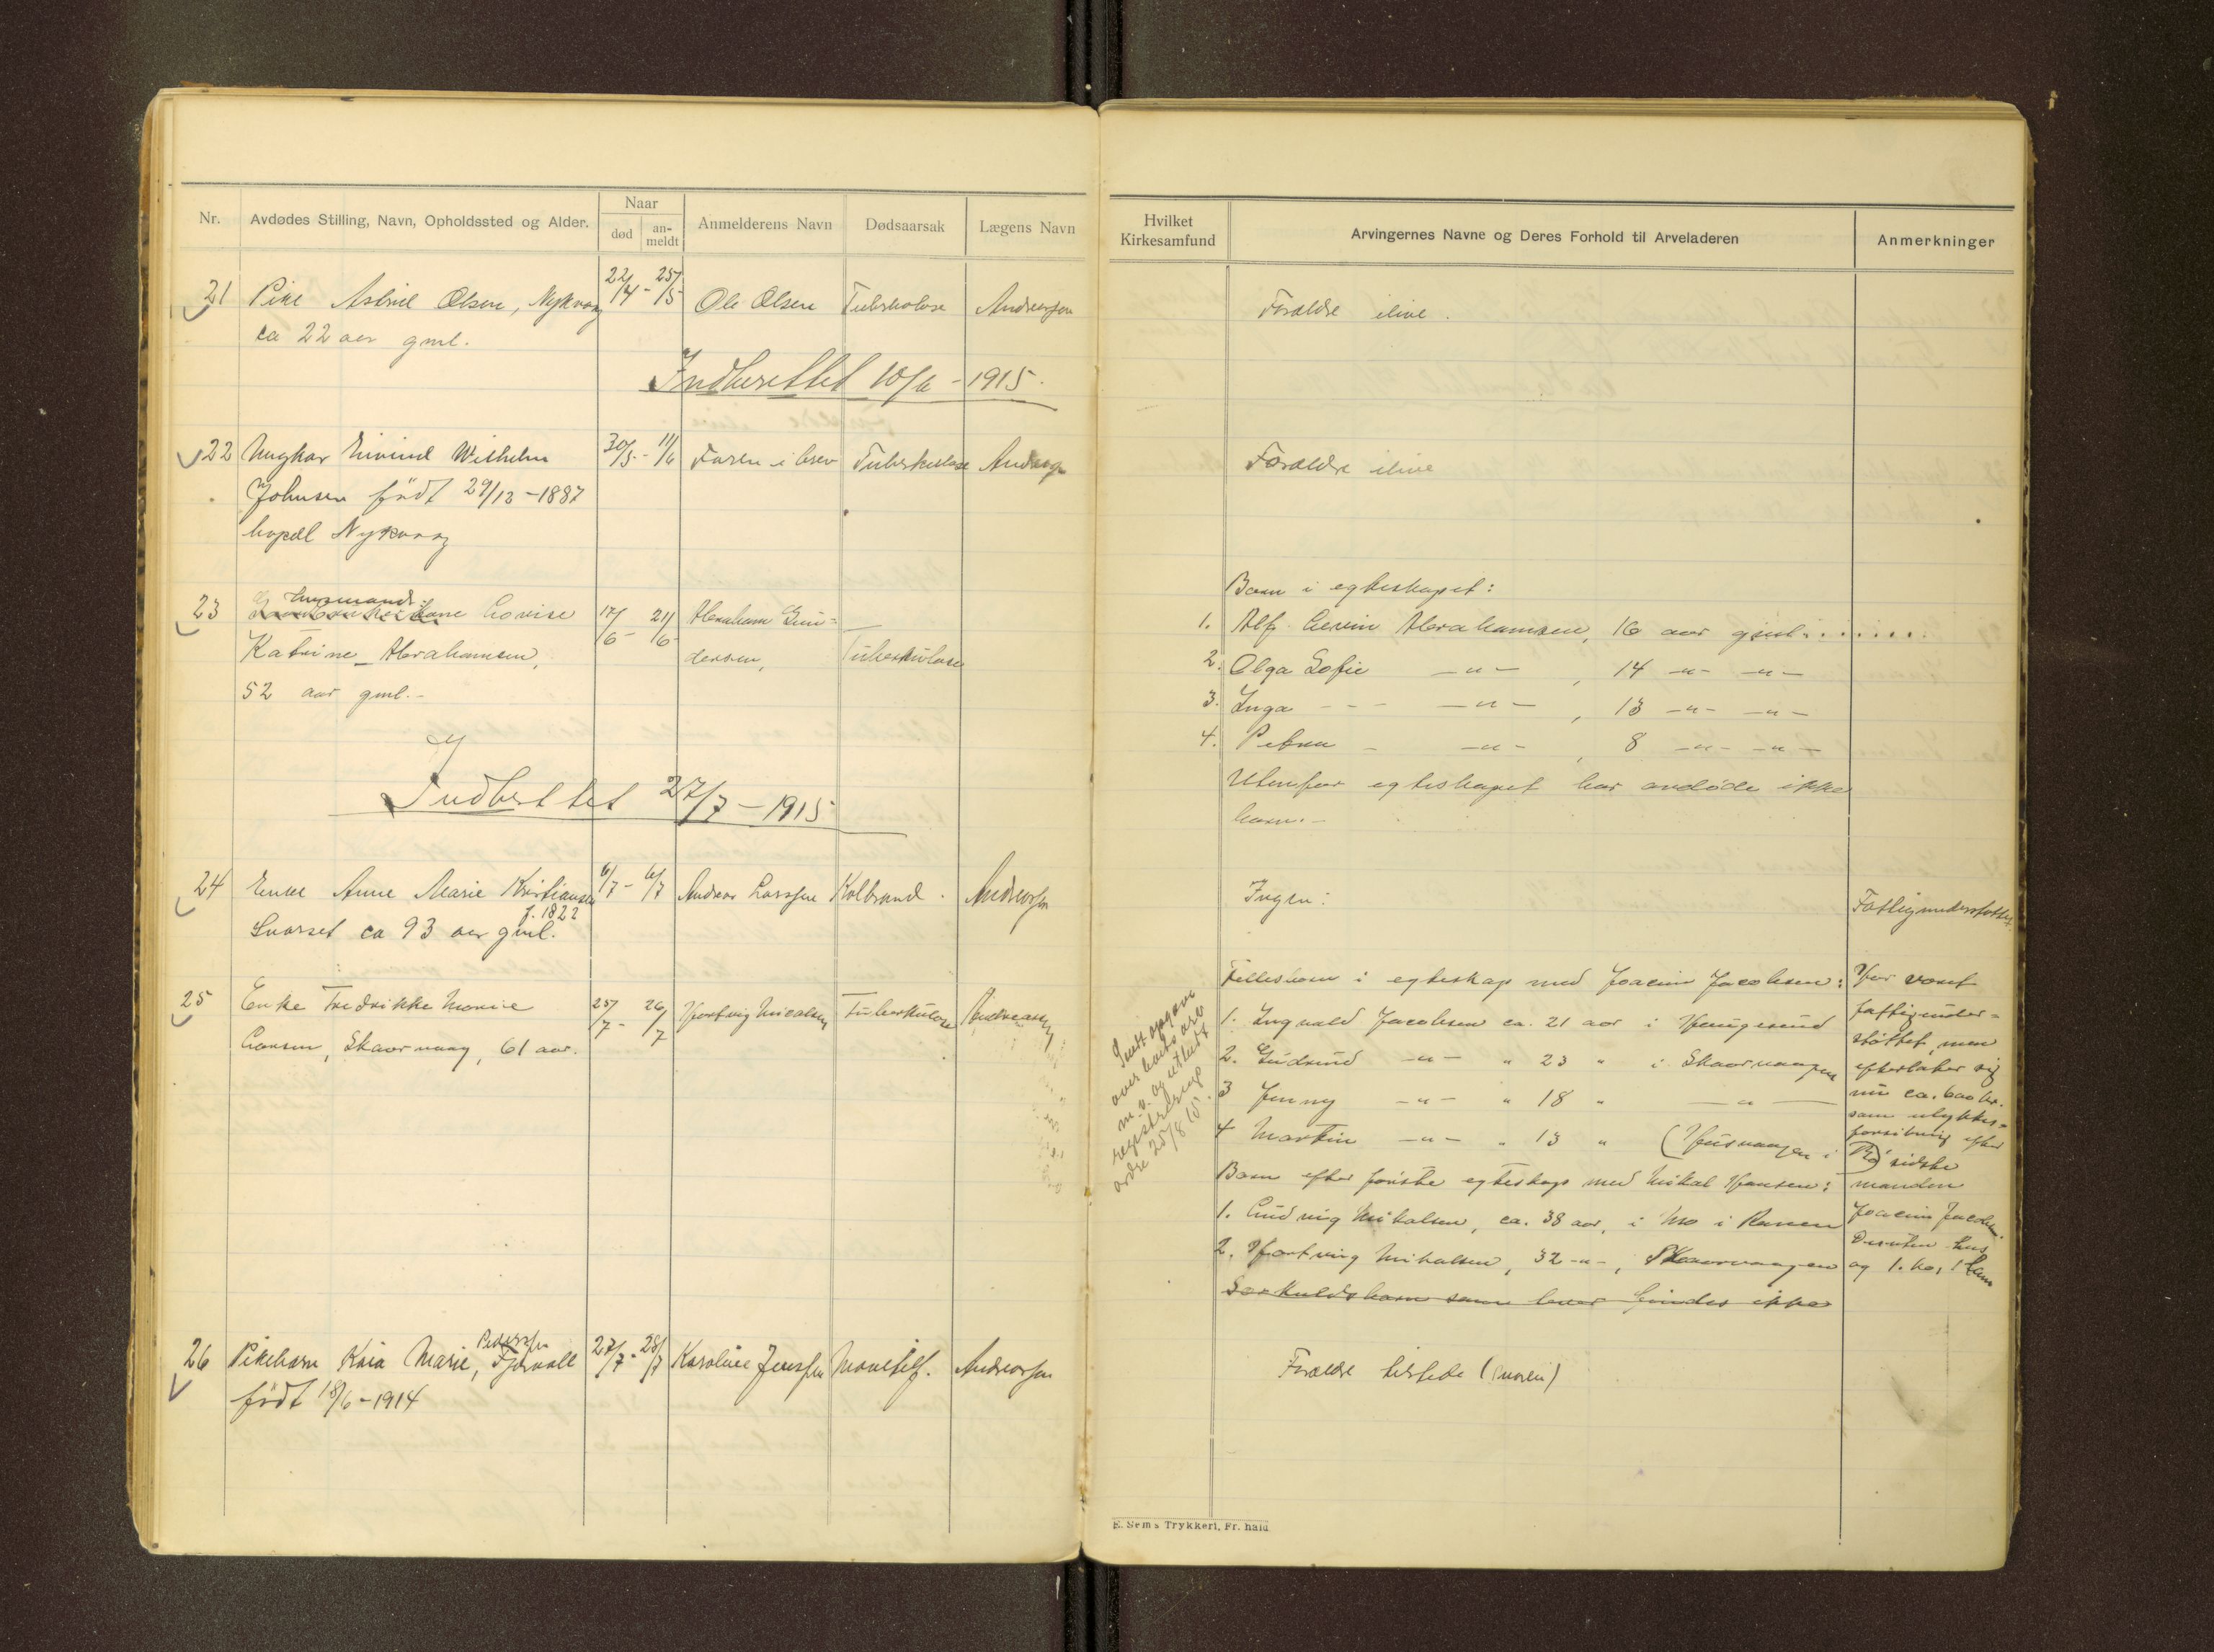 Nr.
Avdødes Stilling, Navn, Opholdssted og Alder.
Naar
død
an-
meldt
Anmelderens Navn
Dødsaarsak
Lægens Navn
21 Pike Astrid Olsen, Nykvaag 22/4 - 25/5 Ole Olsen Tuberkulose Andreassen
ca 22 aar gml.
Indberettet 10/6 - 1915.
22 Ungkar Eivind Wilhelm 30/5 - 11/6 Faren i brev Tuberkulose
Johnsen født 29/12 - 1887
Nykvaag
Husmands-
23 kone Lovise 17/6 - 21/6 Abraham Gun-
Katrine Abrahamsen, dersen, Tuberkulose
52 aar gml. -
Indberettet 27/7 - 1915
24 Enke Anne Marie Kristiansen 6/7 - 6/7 Andreas Larssen Kolbrand. Andreassen
f. 1822
ca 93 aar gml.
25 Enke Fredrikke Marie 25/7 - 26/7 Hartvig Mikalsen Tuberkulose Andreassen
Skaarvaag, 61 aar.
Pederssen
26 Pikebarn Kaia Marie, 27/7 - 28/7 Karoline Jenssen Andreassen
født 18/6 - 1914
Hvilket
Kirkesamfund
Arvingernes Navne og Deres Forhold til Arveladeren
Anmerkninger
Forældre ilive.
Forældre ilive
Barn i egteskapet:
1. Alf Abrahamsen, 16 aar gml. . . . . . .
2. Olga Sofie -"- , 14 -"- -"-
3. Inga - - - -"- , 13 -"- -"-
4. Petra - -"- , 8 -"- -"-
Utenfor egteskapet har avdøde ikke
barn. -
Ingen: Fattigunderstøttet
Fællesbarn i egteskap med Joacim Jacobsen:
1. Ingvald Jacobsen ca. 21 aar i Haugesund
2. Gudrund -"- " 23 " i Skaarvaagen
3 Jenny -"- " 18 " -"-
4 Martin -"- " 13 " (Husvaagen i
Barn efter første egteskap med Mikal Hansen:
1. Ludvig Mikalsen, ca. 38 aar, i Mo i Ranen
2. Hartvig Mikalsen, 32 -"- , Skaarvaagen
Særkuldsbarn som lever findes ikke
Har været
fattigunder=
støttet, men
efterlater sig
nu ca. 600 kr.
som ulykkes=
forsikring efter
sidste
manden
Joacim Jacobsen.
Desuten hus
og 1. ko, 1 lam
opgave
over
m.v. og utlust
ordre 25/8 15.
Forældre tilstede (moren)
E. Sem's Trykkeri, Fr.hald.